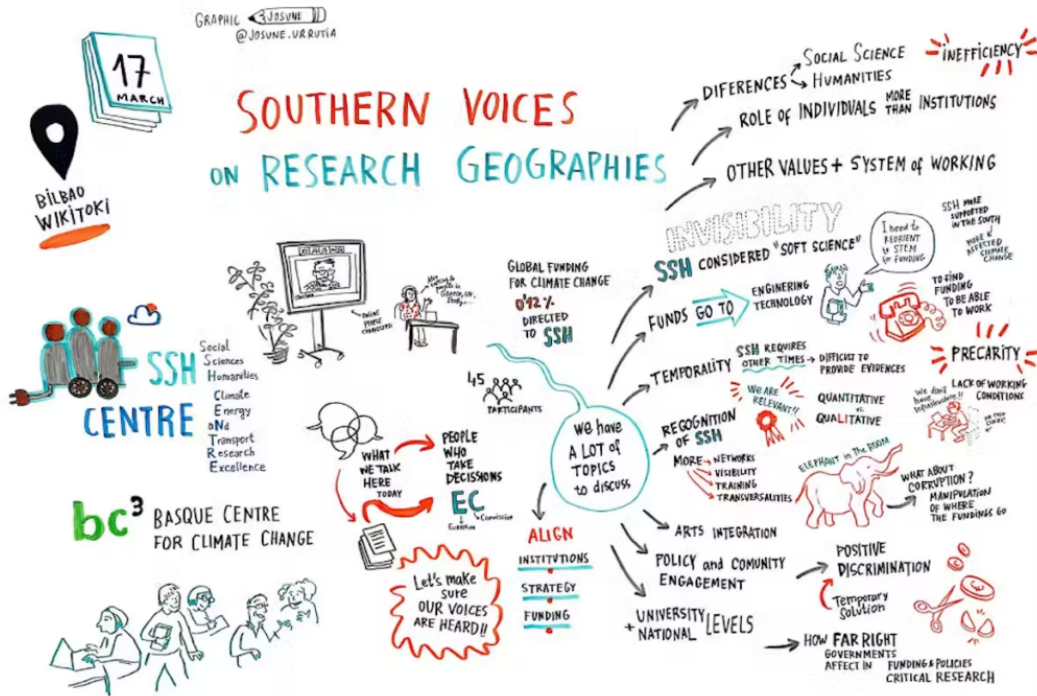 GRAPHIC JOSUNE
@JOSUNE.URRUTIA
17
MARCH
BILBAO
WIKITOKI
SOUTHERN VOICES
ON RESEARCH GEOGRAPHIES
SSH
CENTRE
Social
Sciences
Humanities
Climate
Energy
aNd
Transport
Research
Excellence
bc³ BASQUE CENTRE
FOR CLIMATE CHANGE
ONLINE
PEOPLE
CONNECTED
GLOBAL FUNDING
FOR CLIMATE CHANGE
0'12%
DIRECTED
TO SSH
45
PARTICIPANTS
WHAT
WE TALK
HERE
TODAY
PEOPLE
WHO
TAKE
DECISIONS
EC
European
Commission
Let's make
sure
OUR VOICES
ARE HEARD!!
ALIGN
INSTITUTIONS
STRATEGY
FUNDING
we have
A LOT of
TOPICS
to discuss
DIFERENCES
SOCIAL SCIENCE
HUMANITIES
INEFFICIENCY
ROLE of INDIVIDUALS MORE THAN INSTITUTIONS
OTHER VALUES + SYSTEM of WORKING
INVISIBILITY
SSH CONSIDERED "SOFT SCIENCE"
I need to
REORIENT
to STEM
for FUNDING
SSH MORE
SUPPORTED
IN THE SOUTH
MORE
AFFECTED
CLIMATE
CHANGE
FUNDS GO TO
ENGINERING
TECHNOLOGY
TO FIND
FUNDING
TO BE ABLE
TO WORK
TEMPORALITY
SSH REQUIRES
OTHER TIMES
DIFFICULT TO
PROVIDE EVIDENCES
PRECARITY
LACK OF WORKING
CONDITIONS
We don't
have
RECOGNITION
OF SSH
WE ARE
RELEVANT!!
QUANTITATIVE
vs
QUALITATIVE
MORE
NETWORKS
VISIBILITY
TRAINING
TRANSVERSALITIES
ELEPHANT in THE ROOM
WHAT ABOUT
CORRUPTION?
MANIPULATION
OF WHERE
THE FUNDINGS GO
ARTS INTEGRATION
POLICY and COMUNITY
ENGAGEMENT
POSITIVE
DISCRIMINATION
Temporary
Solution
+ UNIVERSITY
NATIONAL
LEVELS
HOW FAR RIGHT
GOVERNMENTS
AFFECT IN FUNDING & POLICIES
CRITICAL RESEARCH